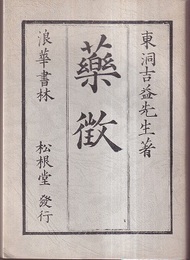 東洞吉益先生著
藥徴
浪華書林　松根堂發行